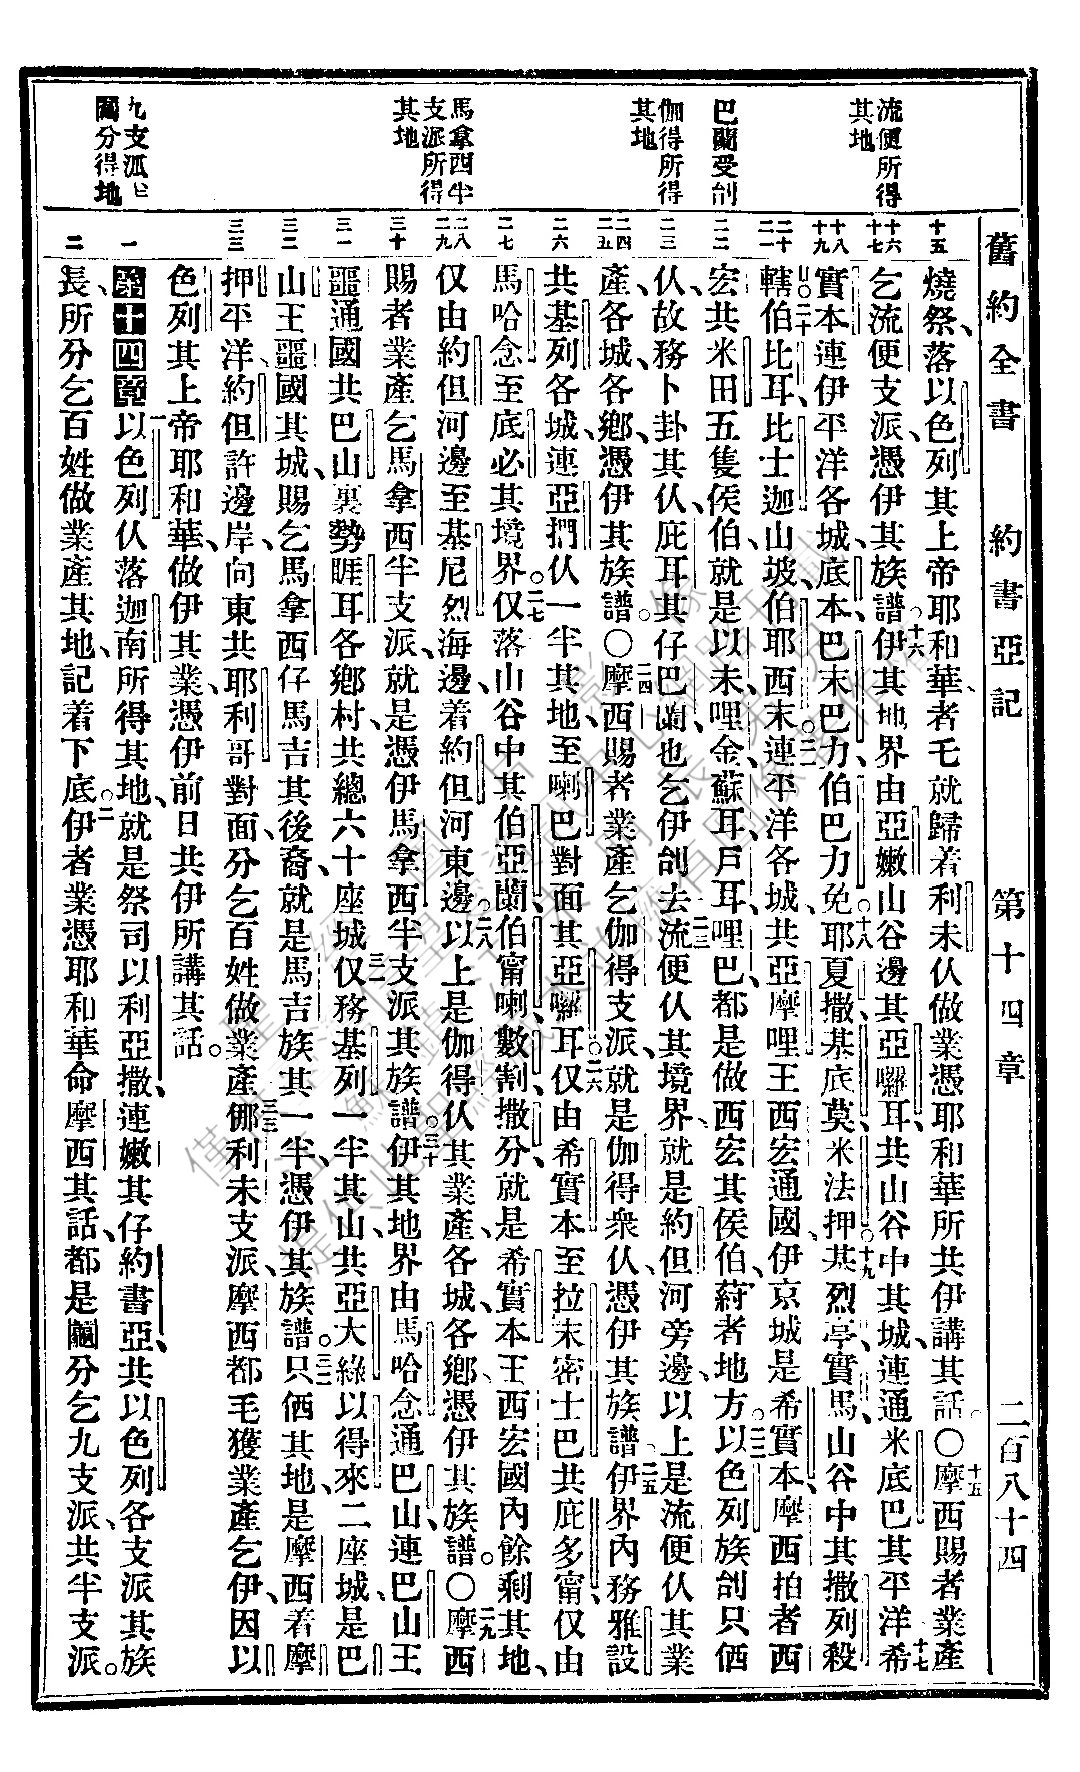 舊約全書 約書亞記 第十四章 二百八十四
流便所得其地
巴蘭受刣
伽得所得其地
馬拿西半支派所得其地
九支派上鬮分得地
十五
十六 十七
十八 十九
二十 二一
二二
二三
二四 二五
二六
二七
二八 二九
三十
三一
三二
三三
一
二
燒祭、落以色列其上帝耶和華、者乇就歸着利未仈做業憑耶和華所共伊講其話。〇十五摩西賜者業產
乞流便支派、憑伊其族譜。十六伊其地界由亞嫩山谷邊其亞囉耳共山谷中其城、連通米底巴其平洋十七希
實本連伊平洋各城、底本巴末巴力伯巴力免、十八耶夏撒基底莫米法押、十九基烈亭實馬山谷中其撒列殺
轄、二十伯比耳、比士迦山坡、伯耶西末、二一連平洋各城、共亞摩哩王西宏通國、伊京城是希實本、摩西拍者西
宏共米田五隻侯伯就是以未、哩金、蘇耳、戶耳、哩巴都是做西宏其侯伯、蒔者地方。二二以色列族刣只俩
仈、故務卜卦其仈、庇耳其仔巴蘭也乞伊刣去。二三流便仈其境界就是約但河旁邊、以上是流便仈其業
產、各城、各鄉、憑伊其族譜。〇二四摩西賜者業產乞伽得支派、就是伽得眾仈、憑伊其族譜。二五伊界內務雅設
共基列各城、連亞捫仈一半其地、至喇巴對面其亞囉耳。二六仅由希實本至拉末密士巴共庇多甯、仅由
馬哈念至底必其境界。二七仅落山谷中其伯亞蘭、伯甯喇、數割、撒分就是希實本王西宏國內餘剩其地、
仅由約但河邊至基尼烈海邊、着約但河東邊。二八以上是伽得仈其業產、各城、各鄉、憑伊其族譜。〇二九摩西
賜者業產乞馬拿西半支派、就是憑伊馬拿西半支派其族譜。三十伊其地界由馬哈念通巴山、連巴山王
噩通國共巴山裏勢睚耳各鄉村、共總六十座城。三一仅務基列一半其山、共亞大綠以得來二座城、是巴
山王噩國其城、賜乞馬拿西仔馬吉其後裔、就是馬吉族其一半、憑伊其族譜。三二只俩其地是摩西着摩
押平洋、約但許邊岸、向東共耶利哥對面、分乞百姓做業產。三三儺利未支派、摩西都乇獲業產乞伊、因以
色列其上帝耶和華、做伊其業、憑伊前日共伊所講其話。
第十四章 一以色列仈落迦南所得其地、就是祭司以利亞撒、連嫩其仔約書亞、共以色列各支派其族
長、所分乞百姓做業產其地、記着下底。二伊者業憑耶和華命摩西其話、都是鬮分乞九支派、共半支派。